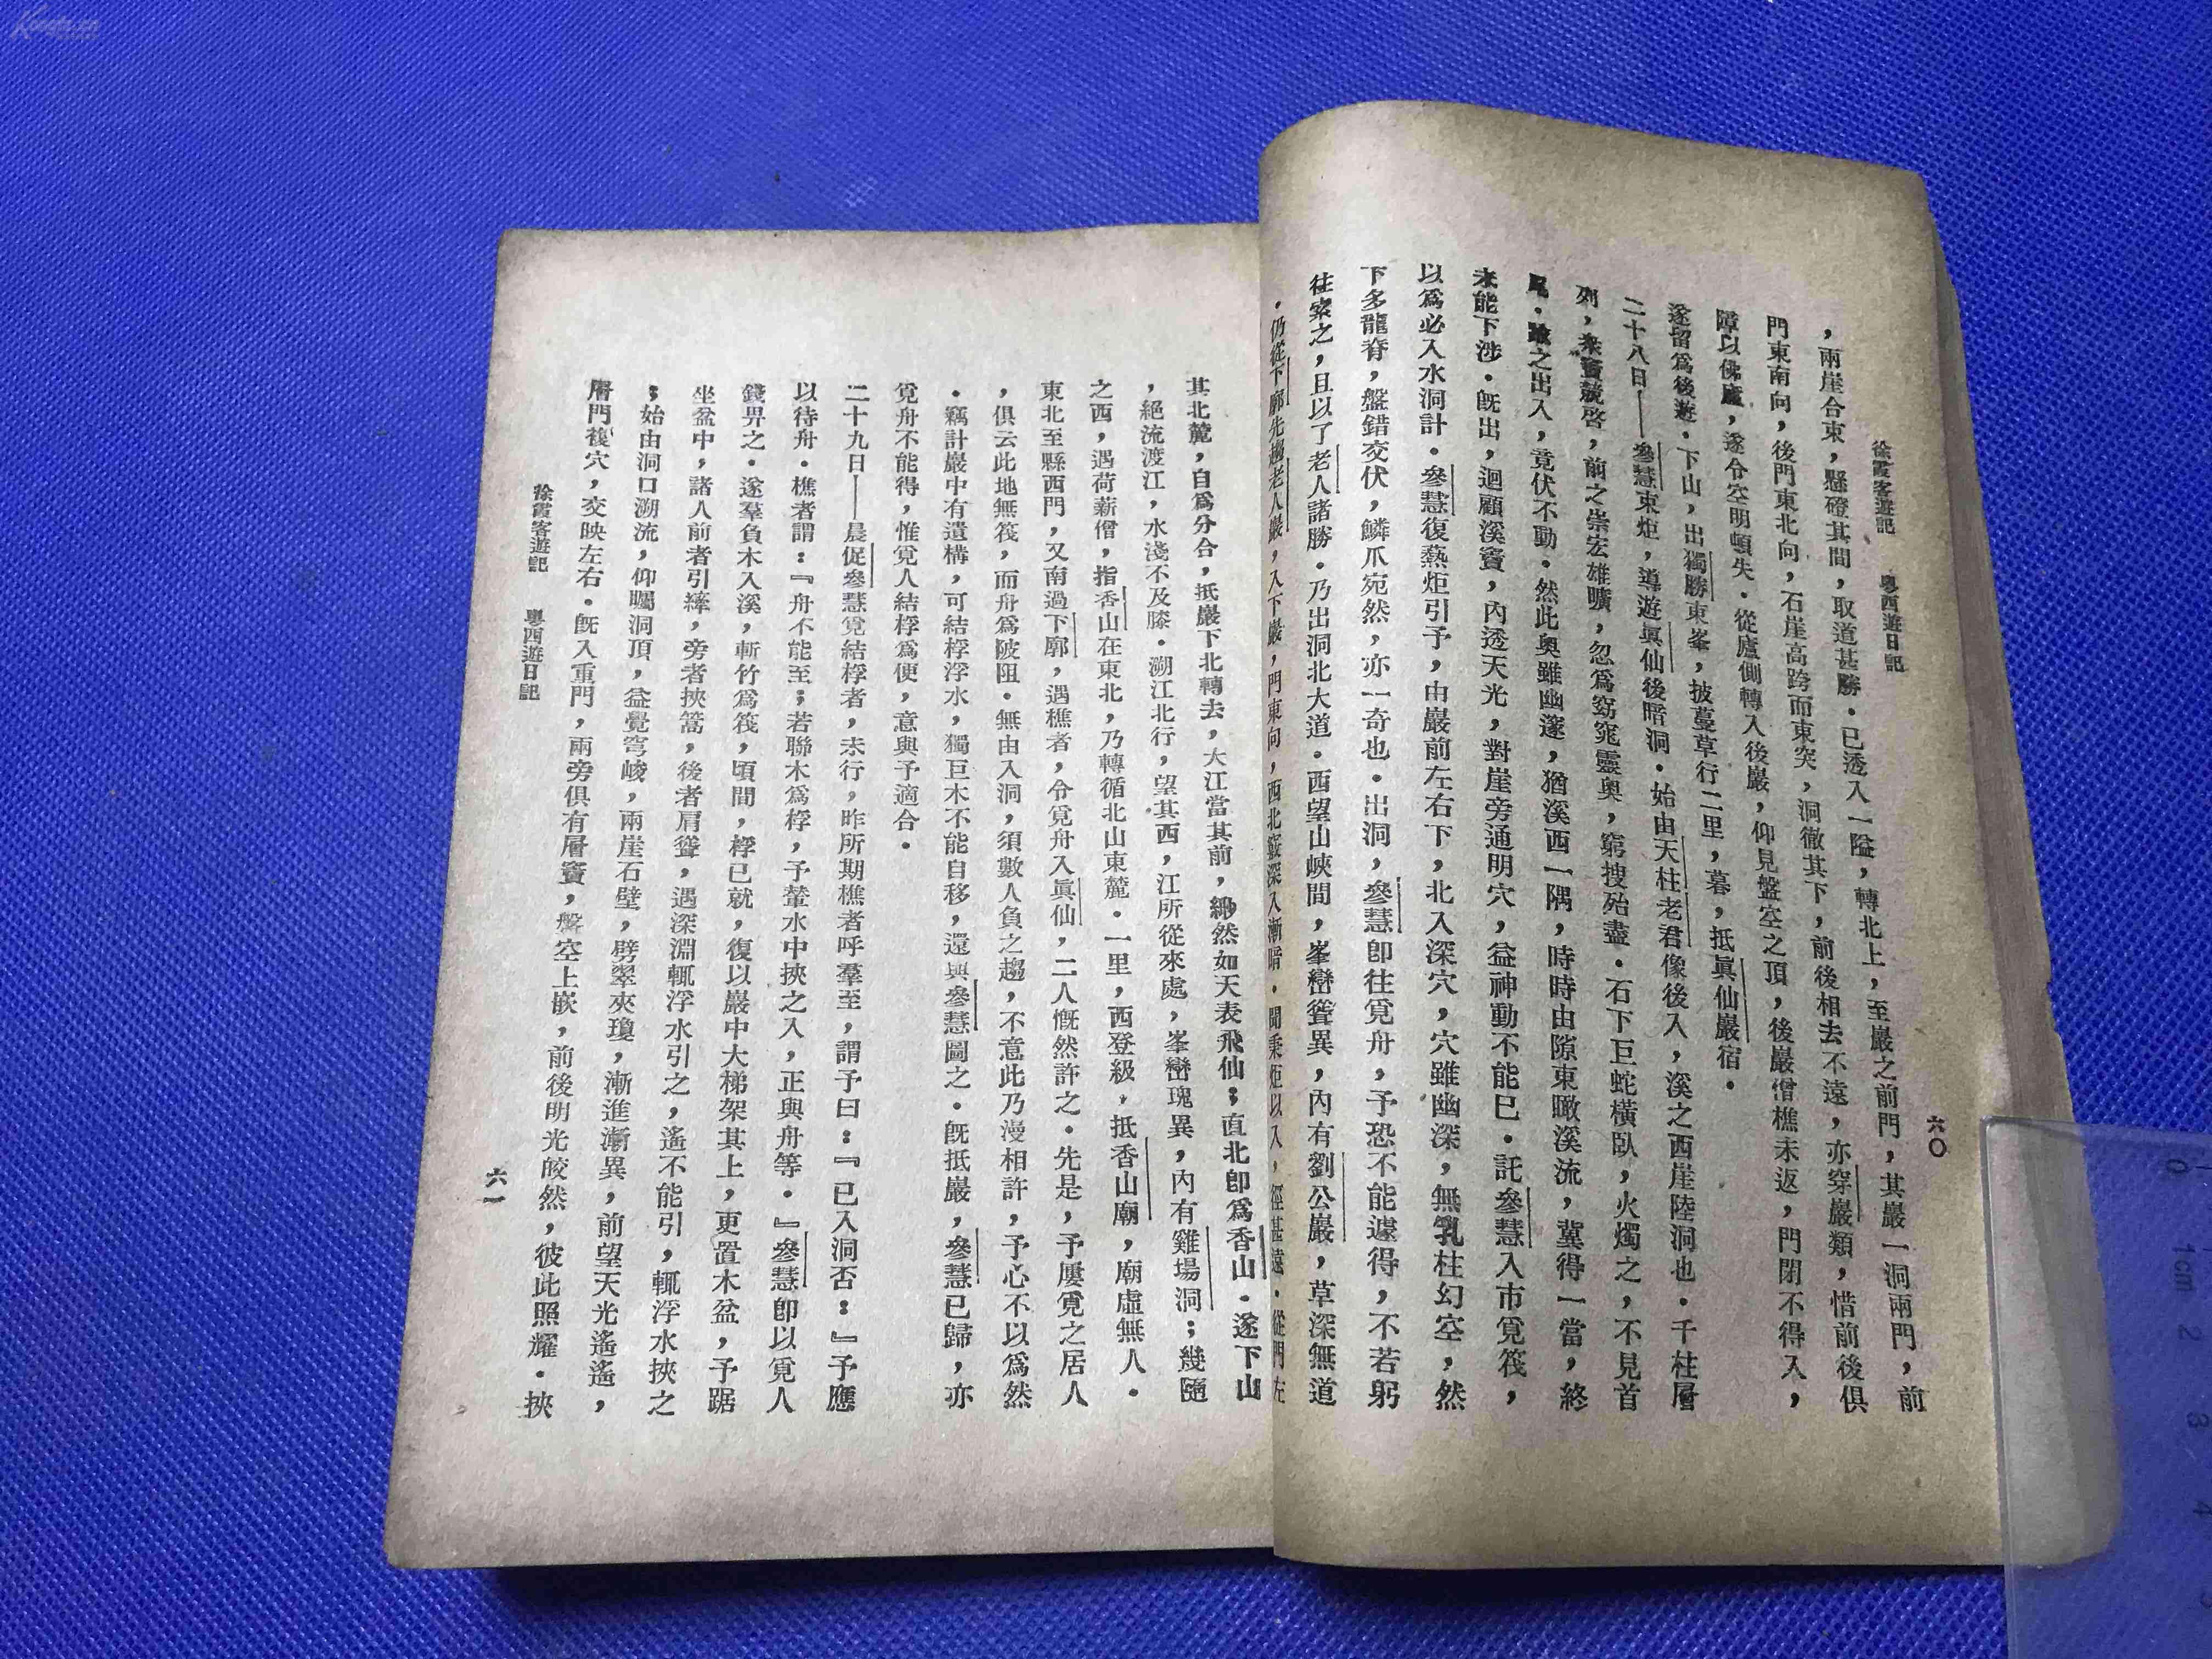 徐霞客遊記　粵西遊日記
六〇
，兩崖合束，懸磴其間，取道甚勝．已透入一隘，轉北上，至巖之前門，其巖一洞兩門，前
門東南向，後門東北向，石崖高跨而東突，洞徹其下，前後相去不遠，亦穿巖類，惜前後俱
障以佛廬，遂令空明頓失．從廬側轉入後巖，仰見盤空之頂，後巖僧樵未返，門閉不得入，
遂留為後遊．下山，出獨勝東峯，披蔓草行二里，暮，抵眞仙巖宿．
二十八日——參慧束炬，導遊眞仙後暗洞．始由天柱老君像後入，溪之西崖陸洞也．千柱層
列，衆竇競啓，前之崇宏雄曠，忽為窈窕靈奧，窮搜殆盡．石下巨蛇橫臥，火燭之，不見首
尾．踰之出入，竟伏不動．然此奧雖幽邃，猶溪西一隅，時時由隙東瞰溪流，冀得一當，終
未能下涉．旣出，迴顧溪竇，內透天光，對崖旁通明穴，益神動不能已．託參慧入市覓筏，
以為必入水洞計．參慧復爇炬引予，由巖前左右下，北入深穴，穴雖幽深，無乳柱幻空，然
下多龍脊，盤錯交伏，鱗爪宛然，亦一奇也．出洞，參慧卽往覓舟，予恐不能遽得，不若躬
往索之，且以了老人諸勝．乃出洞北大道．西望山峽間，峯巒聳異，內有劉公巖，草深無道
．仍從下廓先趨老人巖，入下巖，門東向，西北竅深入漸暗．聞秉炬以入，徑甚遠．從門左
其北麓，自為分合，抵巖下北轉去，大江當其前，緲然如天表飛仙；直北卽為香山．遂下山
，絕流渡江，水淺不及膝．溯江北行，望其西，江所從來處，峯巒瑰異，內有雞場洞；幾隨
之西，遇荷薪僧，指香山在東北，乃轉循北山東麓．一里，西登級，抵香山廟，廟虛無人．
東北至縣西門，又南過下廓，遇樵者，令覓舟入眞仙，二人慨然許之．先是，予屢覓之居人
，俱云此地無筏，而舟為陂阻．無由入洞，須數人負之趨，不意此乃漫相許，予心不以為然
．竊計巖中有遺構，可結桴浮水，獨巨木不能自移，還與參慧圖之．旣抵巖，參慧已歸，亦
覓舟不能得，惟覓人結桴為便，意與予適合．
二十九日——晨促參慧覓結桴者，未行，昨所期樵者呼羣至，謂予曰：『已入洞否：』予應
以待舟．樵者謂：『舟不能至；若聯木為桴，予輩水中挾之入，正與舟等．』參慧卽以覓人
錢畀之．遂羣負木入溪，斬竹為筏，頃間，桴已就，復以巖中大梯架其上，更置木盆，予踞
坐盆中，諸人前者引縴，旁者挾篙，後者肩聳，遇深淵輒浮水引之，遙不能引，輒浮水挾之
；始由洞口溯流，仰矚洞頂，益覺穹峻，兩崖石壁，劈翠夾瓊，漸進漸異，前望天光遙遙，
層門複穴，交映左右．旣入重門，兩旁俱有層竇，盤空上嵌，前後明光皎然，彼此照耀．挾
徐霞客遊記　粵西遊日記
六一